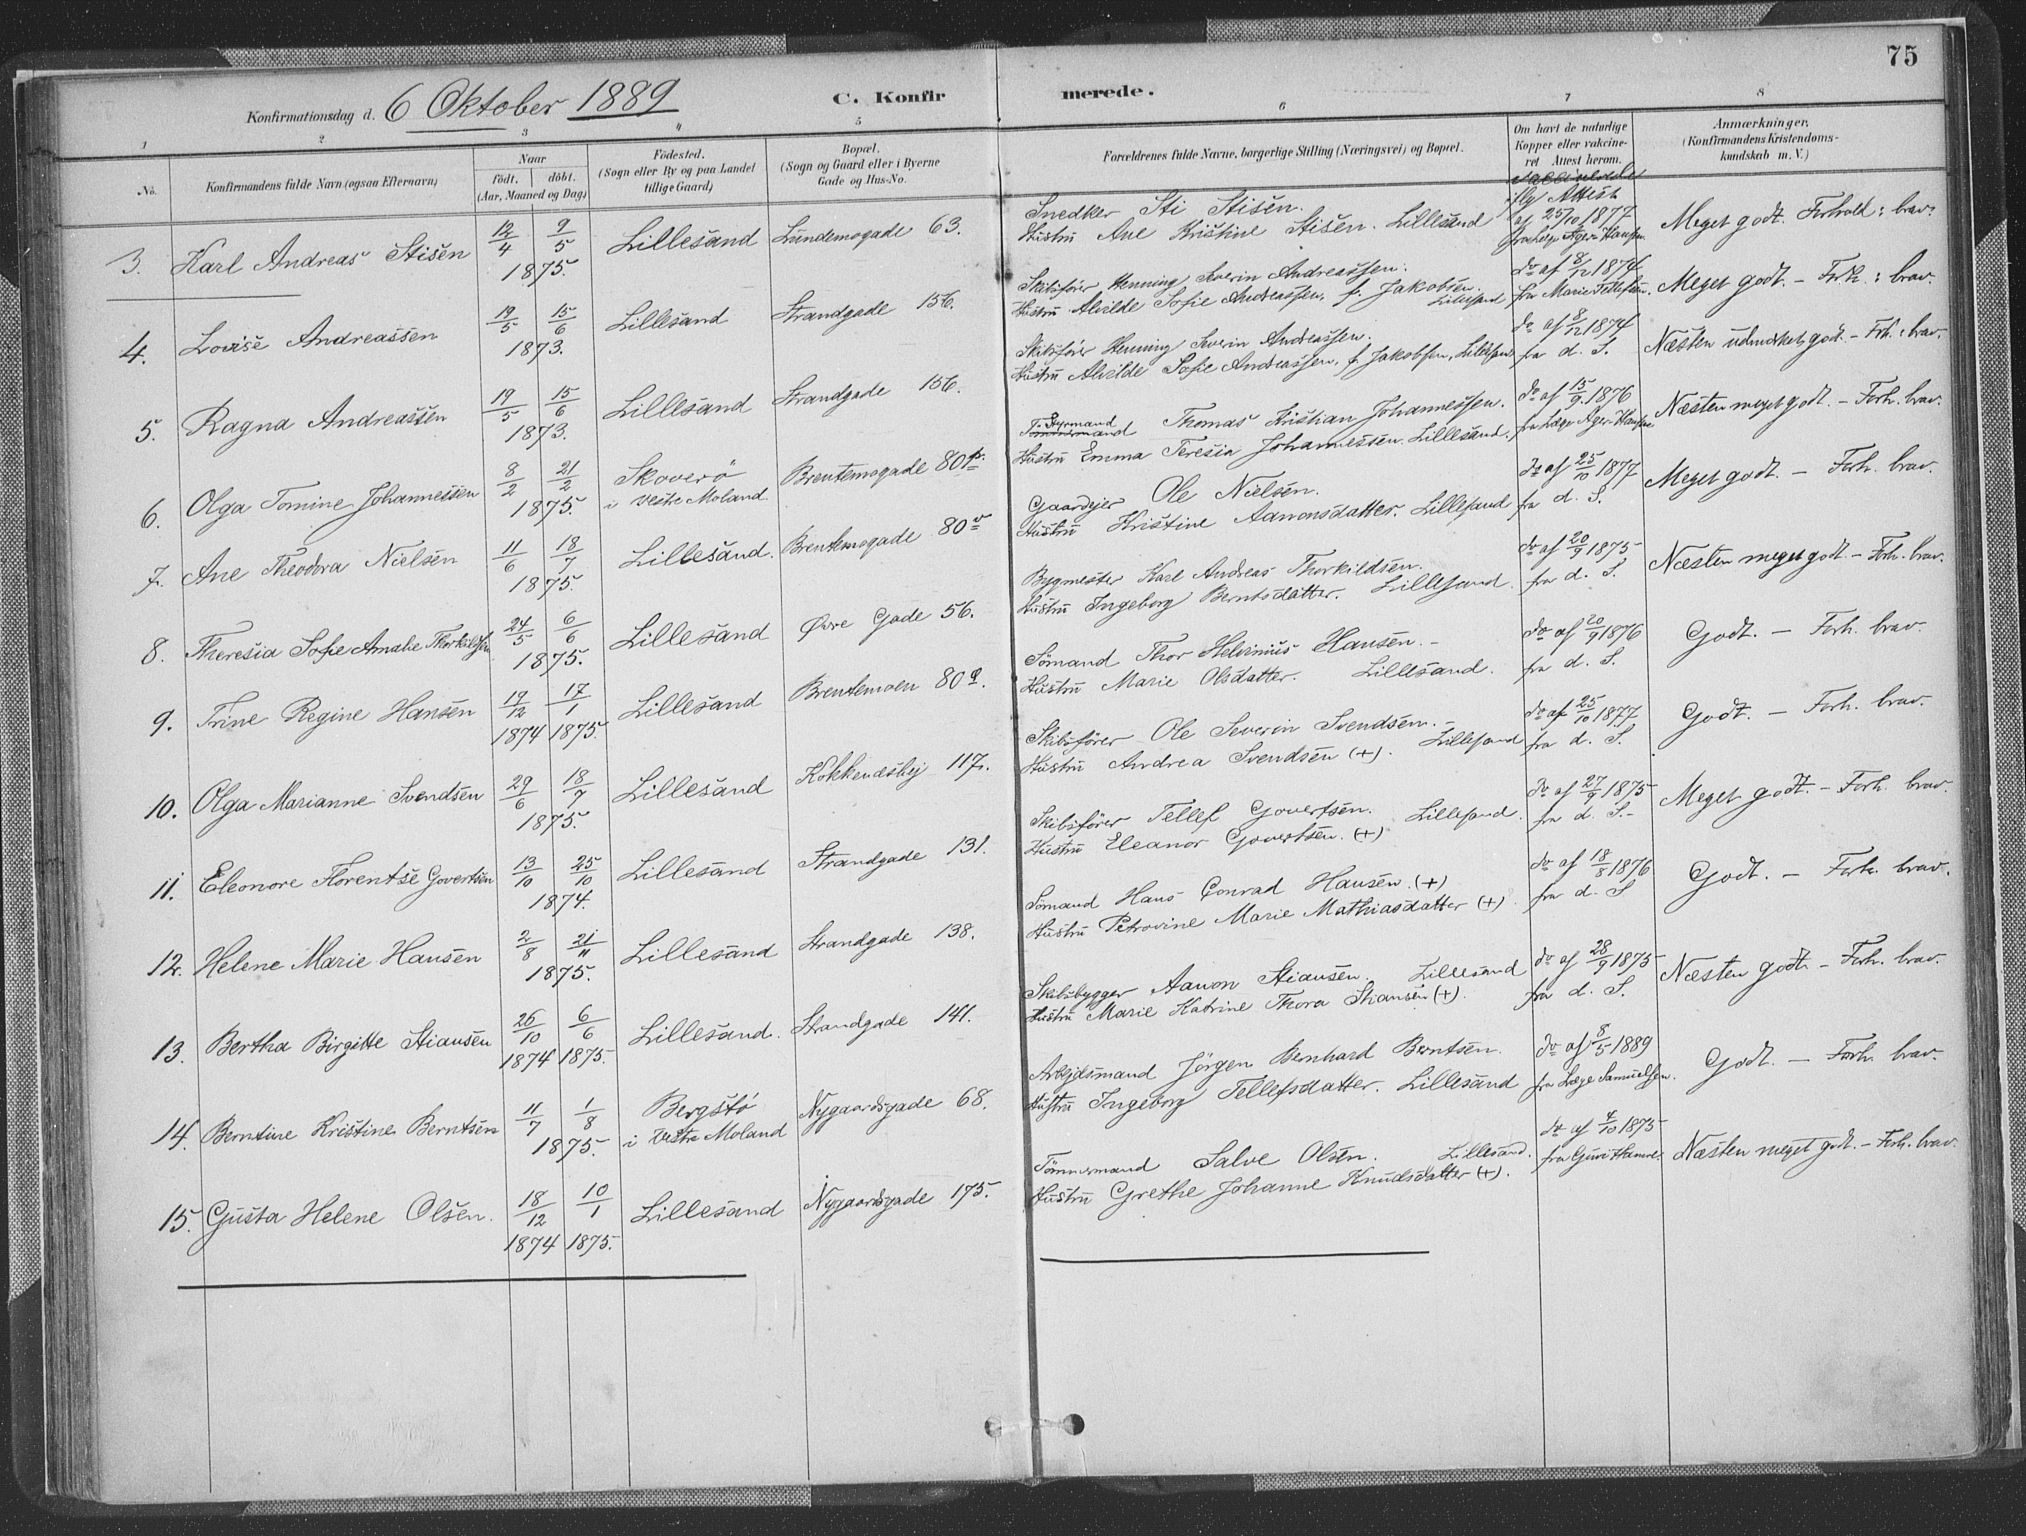 75
Konfirmationsdag d. 6 Oktober 1889
C. Konfirmerede.
1 2 3 4 5 6 7 8
No.
Konfirmandens fulde Navn (ogsaa Efternavn)
Naar
født. døbt.
(Aar, Maaned og Dag)
Fødested.
(Sogn eller By og paa Landet
tillige Gaard)
Bopæl.
(Sogn og Gaard eller i Byerne
Gade og Hus-No.
Forældrenes fulde Navne, borgerlige Stilling (Næringsvei) og Bopæl.
Om havt de naturlige
Kopper eller vakcine-
ret Attest herom.
Anmærkninger.
(Konfirmandens Kristendoms-
kundskab m. V.)
3. Karl Andreas Stisen 12/4 9/5 1875. Lillesand Lundemogade 63.
Snedker Sti Stisen.
Hustru Ane Kristine Stisen. Lillesand
iflg Attest
af 25/10 1877
fra Læge Ager-Hansen.
Meget godt. Forhold: brav.
4. Lovise Andreassen 19/5 15/6 1873. Lillesand Strandgade 156.
Skibsfører Henning Severin Andreassen.
Hustru Alvilde Sofie Andreassen, f. Jakobsen. Lillesand
do af 8/12 1874
fra Marie Tellefsen.
Meget godt. – Forh.: brav.
5. Ragna Andreassen 19/5 15/6 1873. Lillesand Strandgade 156.
Skibsfører Henning Severin Andreassen.
Hustru Alvilde Sofie Andreassen, f. Jakobsen, Lillesand
do af 8/12 1874
fra d. S.
Næsten udmerket godt. – Forh.: brav.
6. Olga Tomine Johannessen 8/2 21/2 1875. Skoverö
i Vestre Moland. Brentemogade 80
Styrmand
Tömmermand Thomas Kristian Johannessen.
Hustru Emma Teresia Johannessen. Lillesand.
do af 15/9 1876
fra Læge Ager-Hansen
Næsten meget godt. – Forh. brav.
7. Ane Theodora Nielsen 11/6 18/7 1875. Lillesand. Brentemogade 80
Gaardejer Ole Nielsen.
Hustru Kristine Aanonsdatter. Lillesand
do af 25/10 1877
fra d. S.
Meget godt. – Forh. brav.
8. Theresia Sofie Amalie Thorkildsen 24/5 6/6 1875. Lillesand Øvre Gade 56.
Bygmester Karl Andreas Thorkildsen.
Hustru Ingeborg Berntsdatter. Lillesand.
do af 20/9 1875
fra d. S.
Næsten meget godt – Forh. brav.
9. Trine Regine Hansen 19/12 17/1 1874 1875. Lillesand Brentemoen 80
Sömand Thor Helvinius Hansen. –
Hustru Marie Olsdatter. Lillesand.
do af 20/9 1876
fra d. S.
Godt. – Forh. brav.
10. Olga Marianne Svendsen 29/6 18/7 1875. Lillesand Kokkenæsby 117.
Skibsfører Ole Severin Svendsen. –
Hustru Andrea Svendsen (+). Lillesand
do af 25/10 1877
fra d. S.
Godt. – Forh. brav.
11. Eleonore Florentse Govertsen 13/10 25/10 1874. Lillesand Strandgade 131.
Skibsfører Tellef Govertsen. Lillesand.
Hustru Eleanor Govertsen. (+)
do af 27/9 1875
fra d. S. –
Meget godt. – Forh. brav.
12. Helene Marie Hansen 2/8 21/11 1875. Lillesand Strandgade 138.
Sömand Hans Conrad Hansen. (+)
Hustru Petrovine Marie Mathiasdatter (+).
do af 18/8 1876
fra d. S
Godt. – Forh. brav.
13. Bertha Birgitte Stiansen 26/10 6/6 1874 1875. Lillesand. Strandgade 141.
Skibsbygger Aanon Stiansen. Lillesand
Hustru Marie Katrine Thora Stiansen (+).
do af 28/9 1875
fra d. S.
Næsten godt. – Forh. brav.
14. Berntine Kristine Berntsen 11/7 1/8 1875. Bergstö
i Vestre Moland Nygaardsgade 68.
Arbejdsmand Jörgen Bernhard Berntsen.
Hustru Ingeborg Tellefsdatter. Lillesand
do af 8/5 1889
fra Læge Samuelsen.
Godt. – Forh. brav.
15. Gusta Helene Olsen. 18/12 10/1 1874 1875. Lillesand Nygaardsgade 175.
Tömmermand Salve Olsen. Lillesand.
Hustru Grethe Johanne Knudsdatter (+).
do af 4/10 1875
fra Guri Hamre.
Næsten meget godt. – Forh. brav.